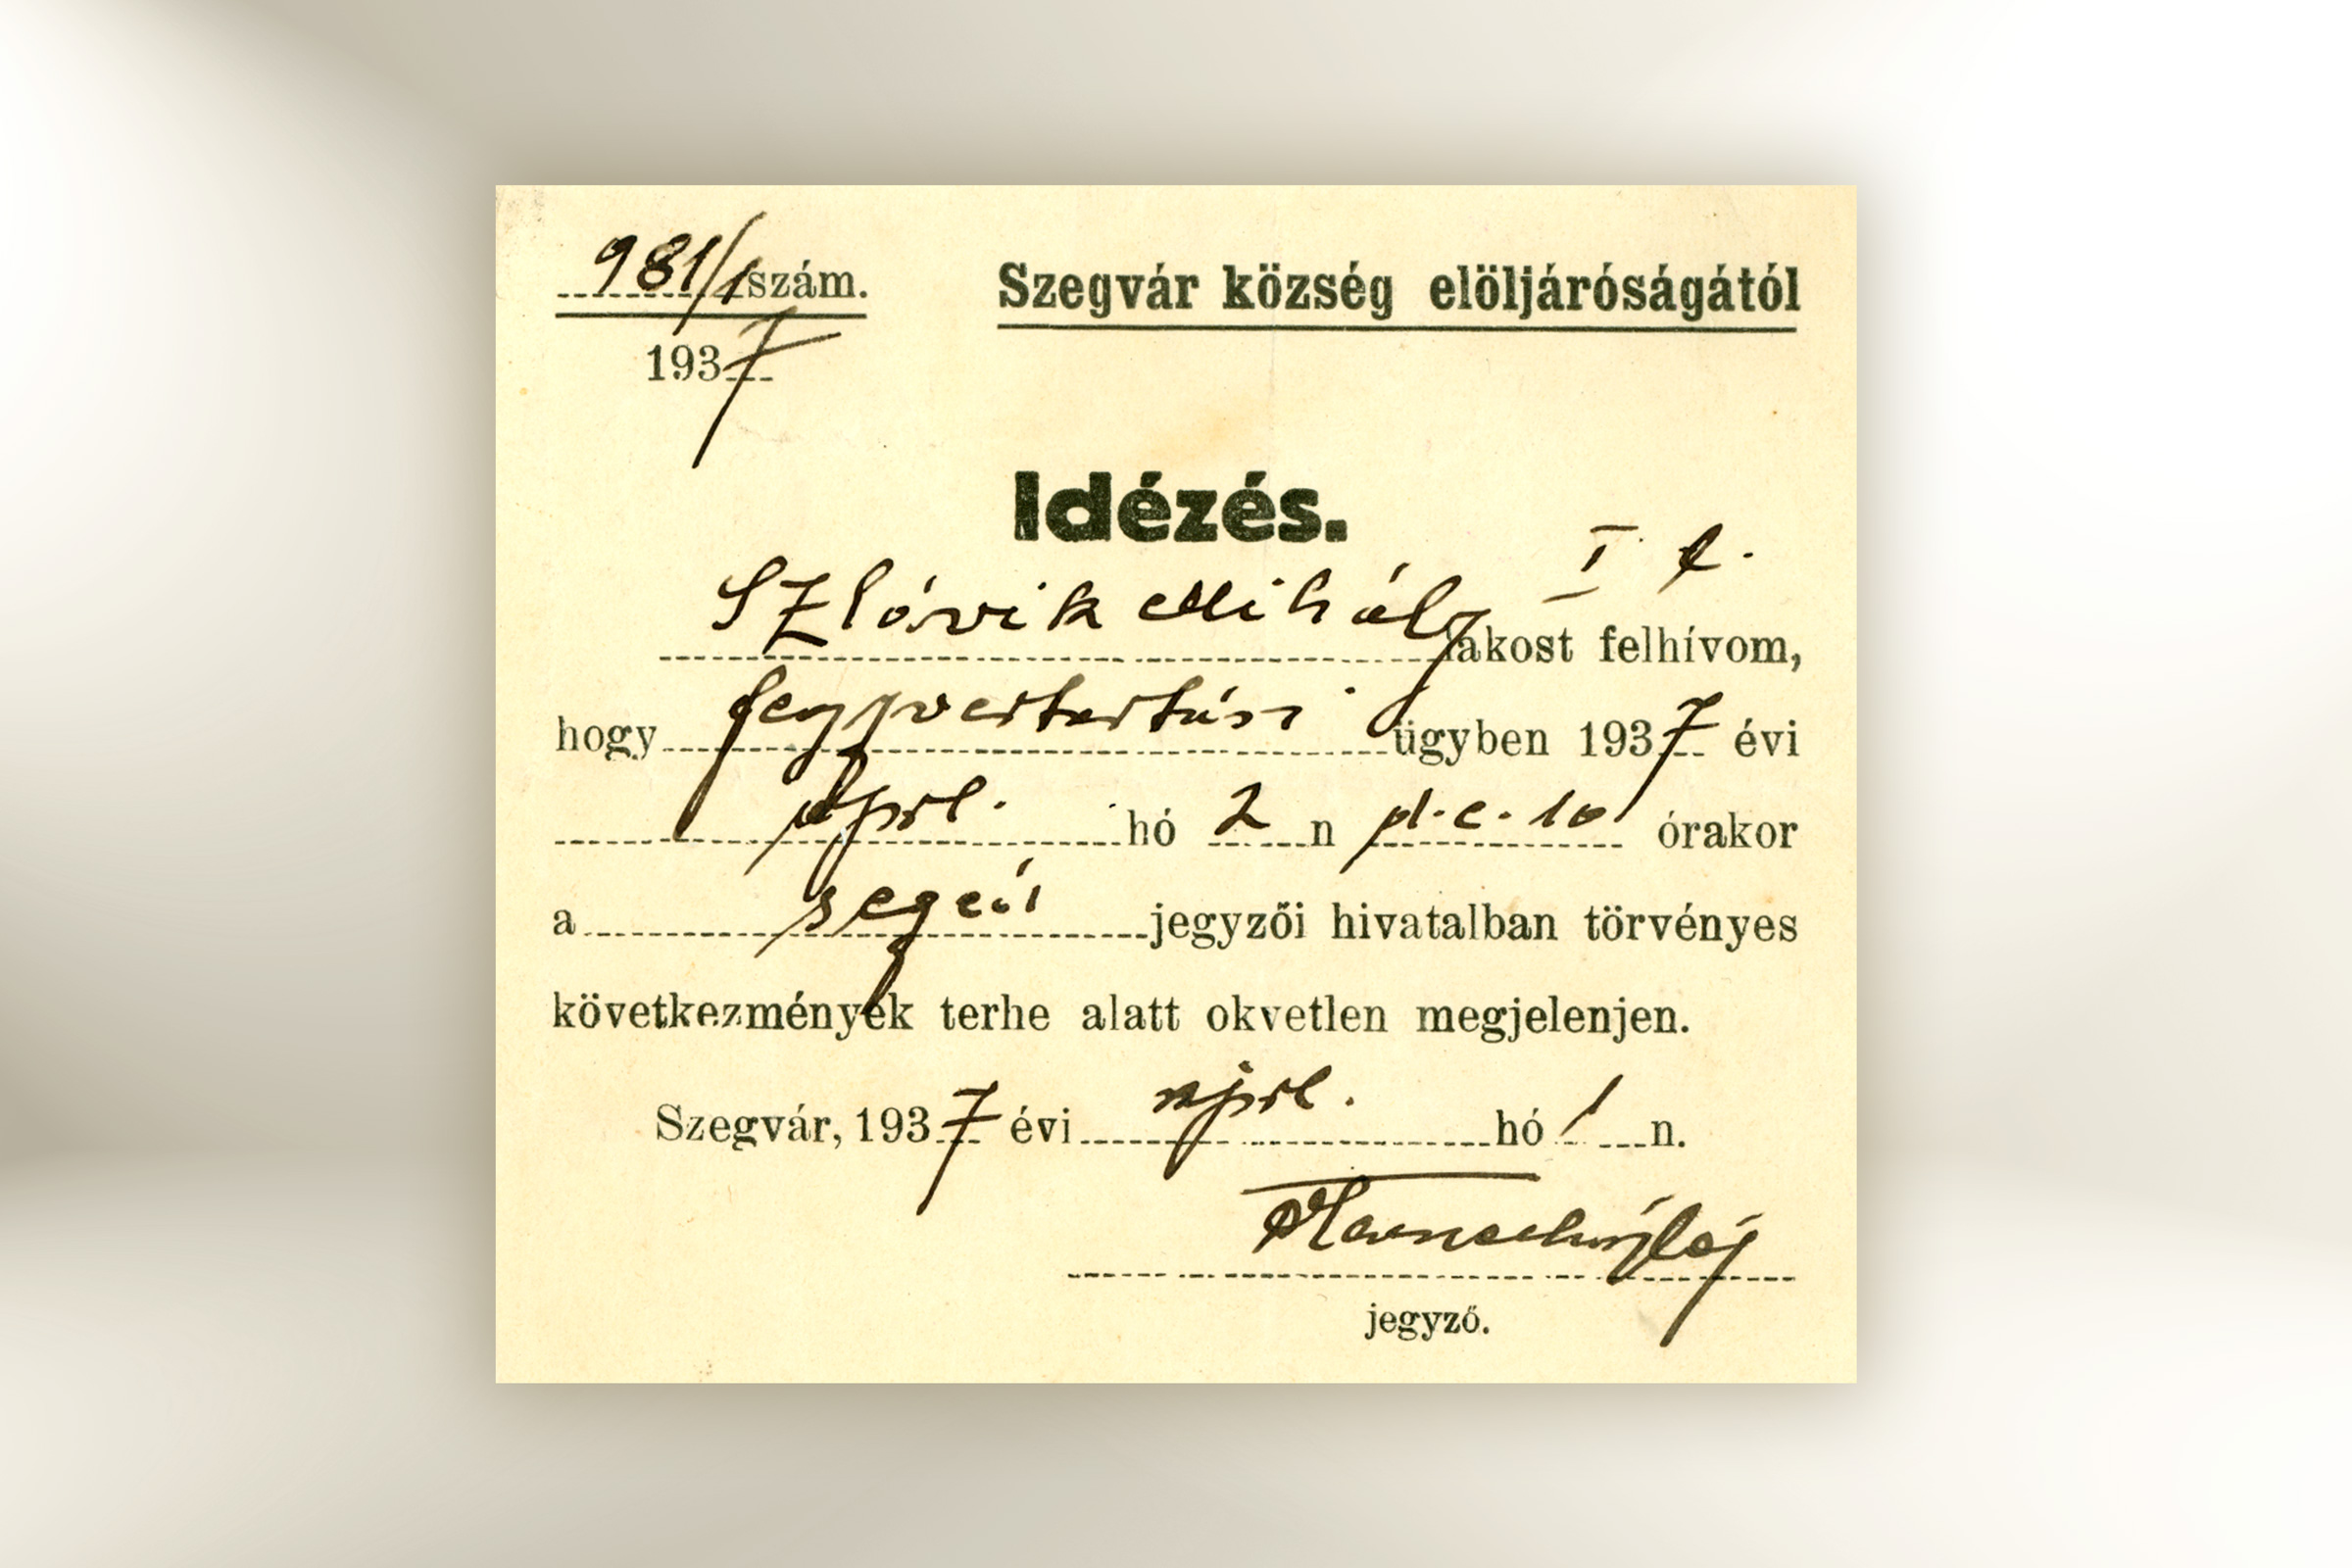 981/1 szám.
1937
Szegvár község elöljáróságától
Idézés.
I t.
Szlávik Mihály lakost felhívom,
hogy fegyvertartási ügyben 1937 évi
ápril. hó 2 n d.e. 10 órakor
a jegyzői hivatalban törvényes
következmények terhe alatt okvetlen megjelenjen.
Szegvár, 1937 évi ápril. hó 1 n.
jegyző.